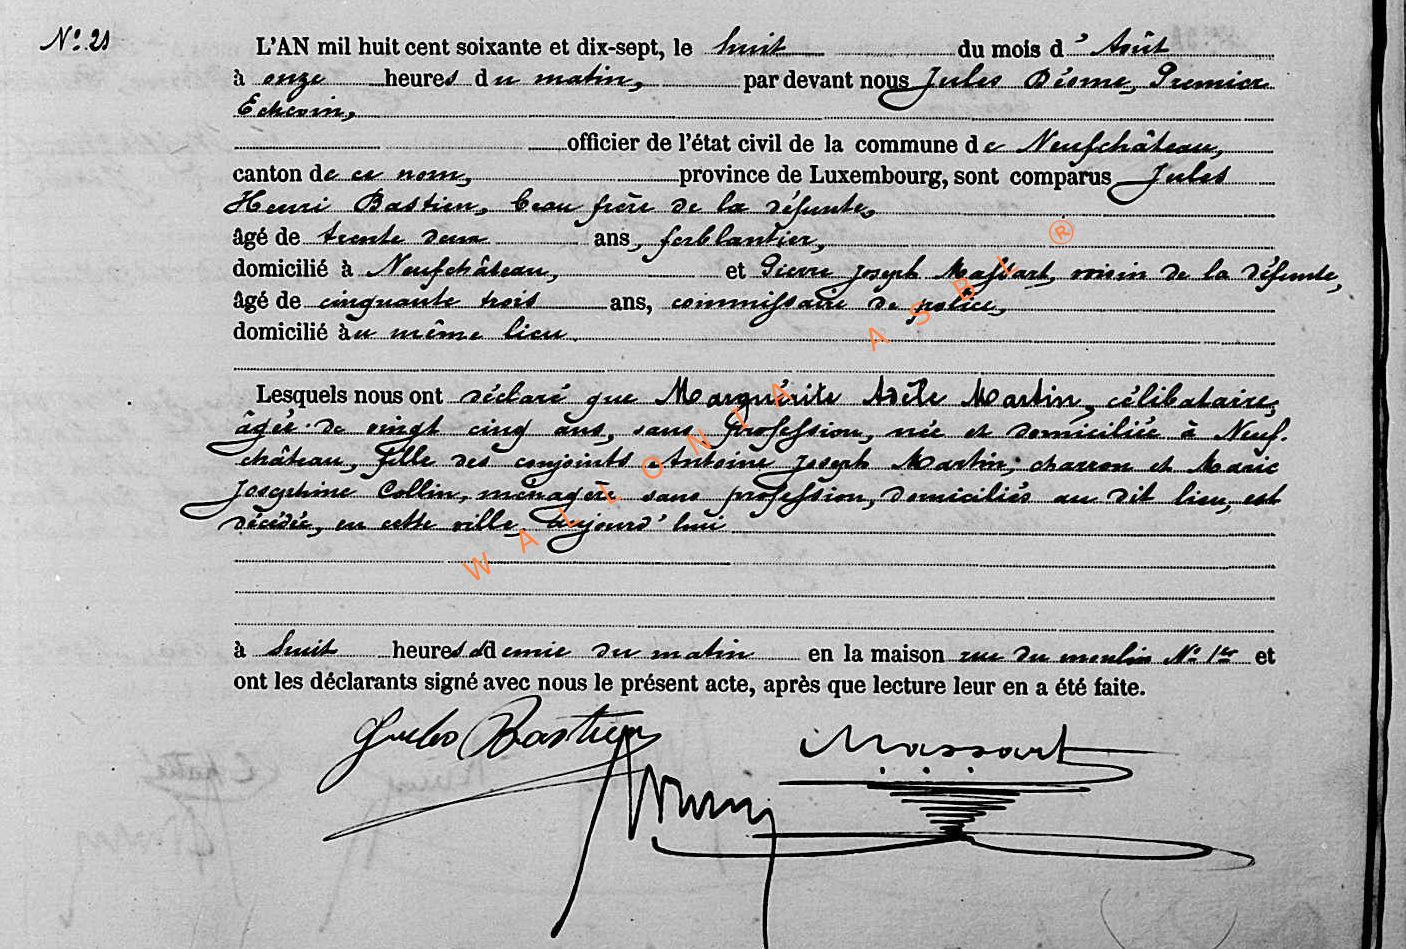 N° 21
L'AN mil huit cent soixante et dix-sept, le huit du mois d'Août
à onze heures du matin, par devant nous Jules Désme, Premier
Echevin,
officier de l'état civil de la commune de Neufchâteau,
canton de ce nom, province de Luxembourg, sont comparus Jules
Henri Bastien, beau frère de la défunte,
âgé de trente deux ans, ferblantier,
domicilié à Neufchâteau, et Pierre Joseph Massart, voisin de la défunte,
âgé de cinquante trois ans, commissaire de police,
domicilié au même lieu
Lesquels nous ont déclaré que Marguérite Adèle Martin, célibataire,
âgée de vingt cinq ans, sans profession, née et domiciliée à Neuf-
château, fille des conjoints Antoine Joseph Martin, charron et Marie
Josephine Collin, ménagère sans profession, domiciliés au dit lieu, est
décédée, en cette ville, aujourd'hui
à huit heures & demie du matin en la maison rue du moulin N° 1er et
ont les déclarants signé avec nous le présent acte, après que lecture leur en a été faite.
Jules Bastien Massart
WALLONIA ASBL ®